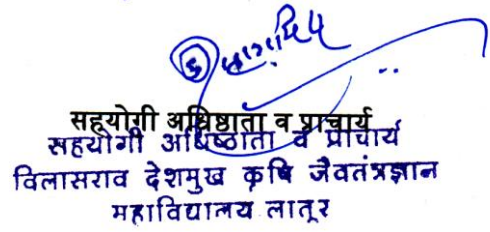 सहयोगी अधिष्ठाता व प्राचार्य
सहयोगी अधिष्ठाता व प्राचार्य
विलासराव देशमुख कृषि जैवतंत्रज्ञान
महाविद्यालय लातूर